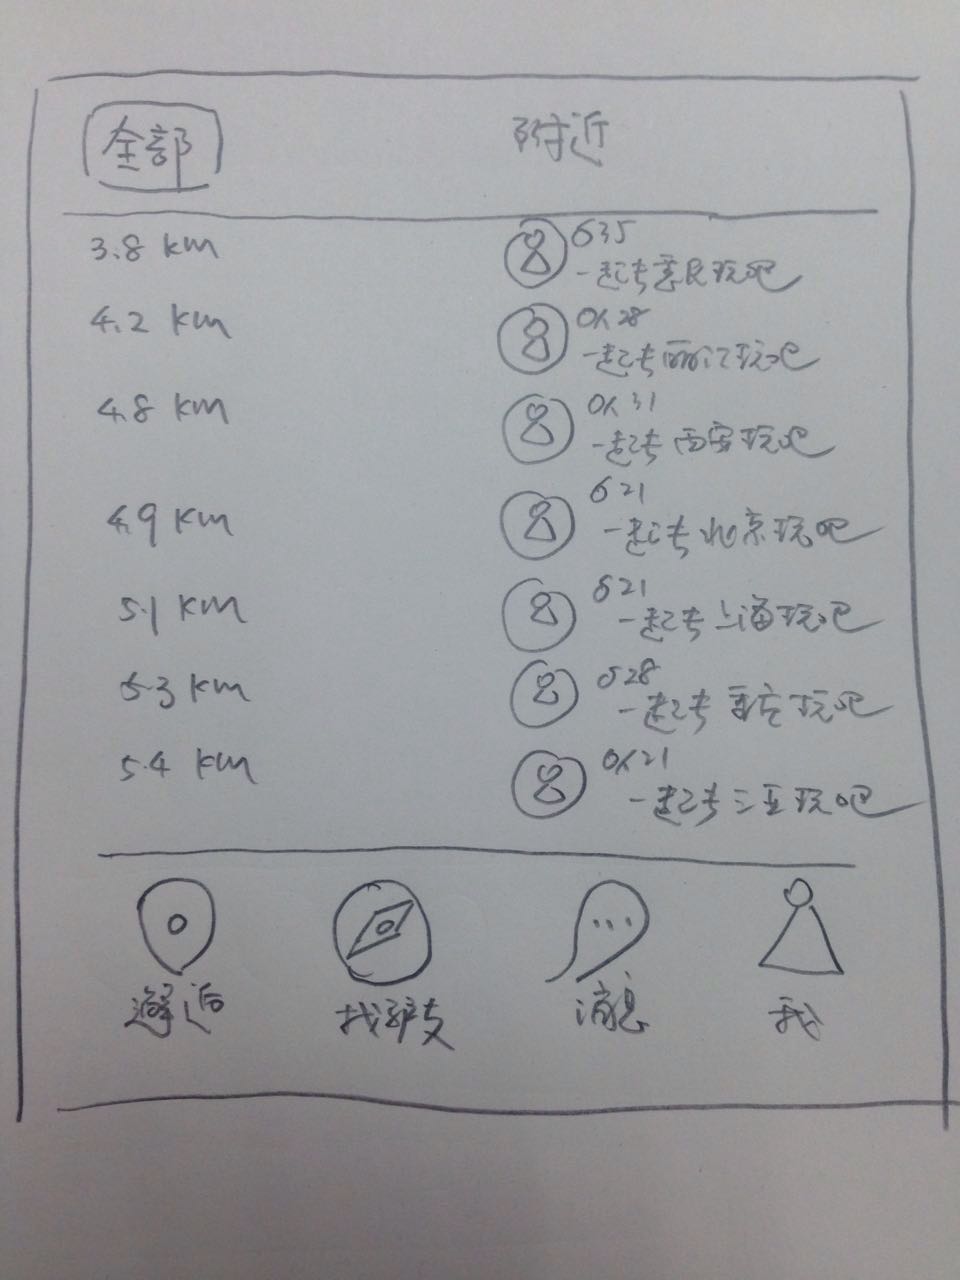 全部 附近
3.8 km 635
一起去 玩吧
4.2 km 28
一起去丽江玩吧
4.8 km 31
一起去西安玩吧
4.9 km 621
一起去北京玩吧
5.1 km 621
一起去上海玩吧
5.3 km 628
一起去重庆玩吧
5.4 km 21
一起去三亚玩吧
邂逅 找驴友 消息 我